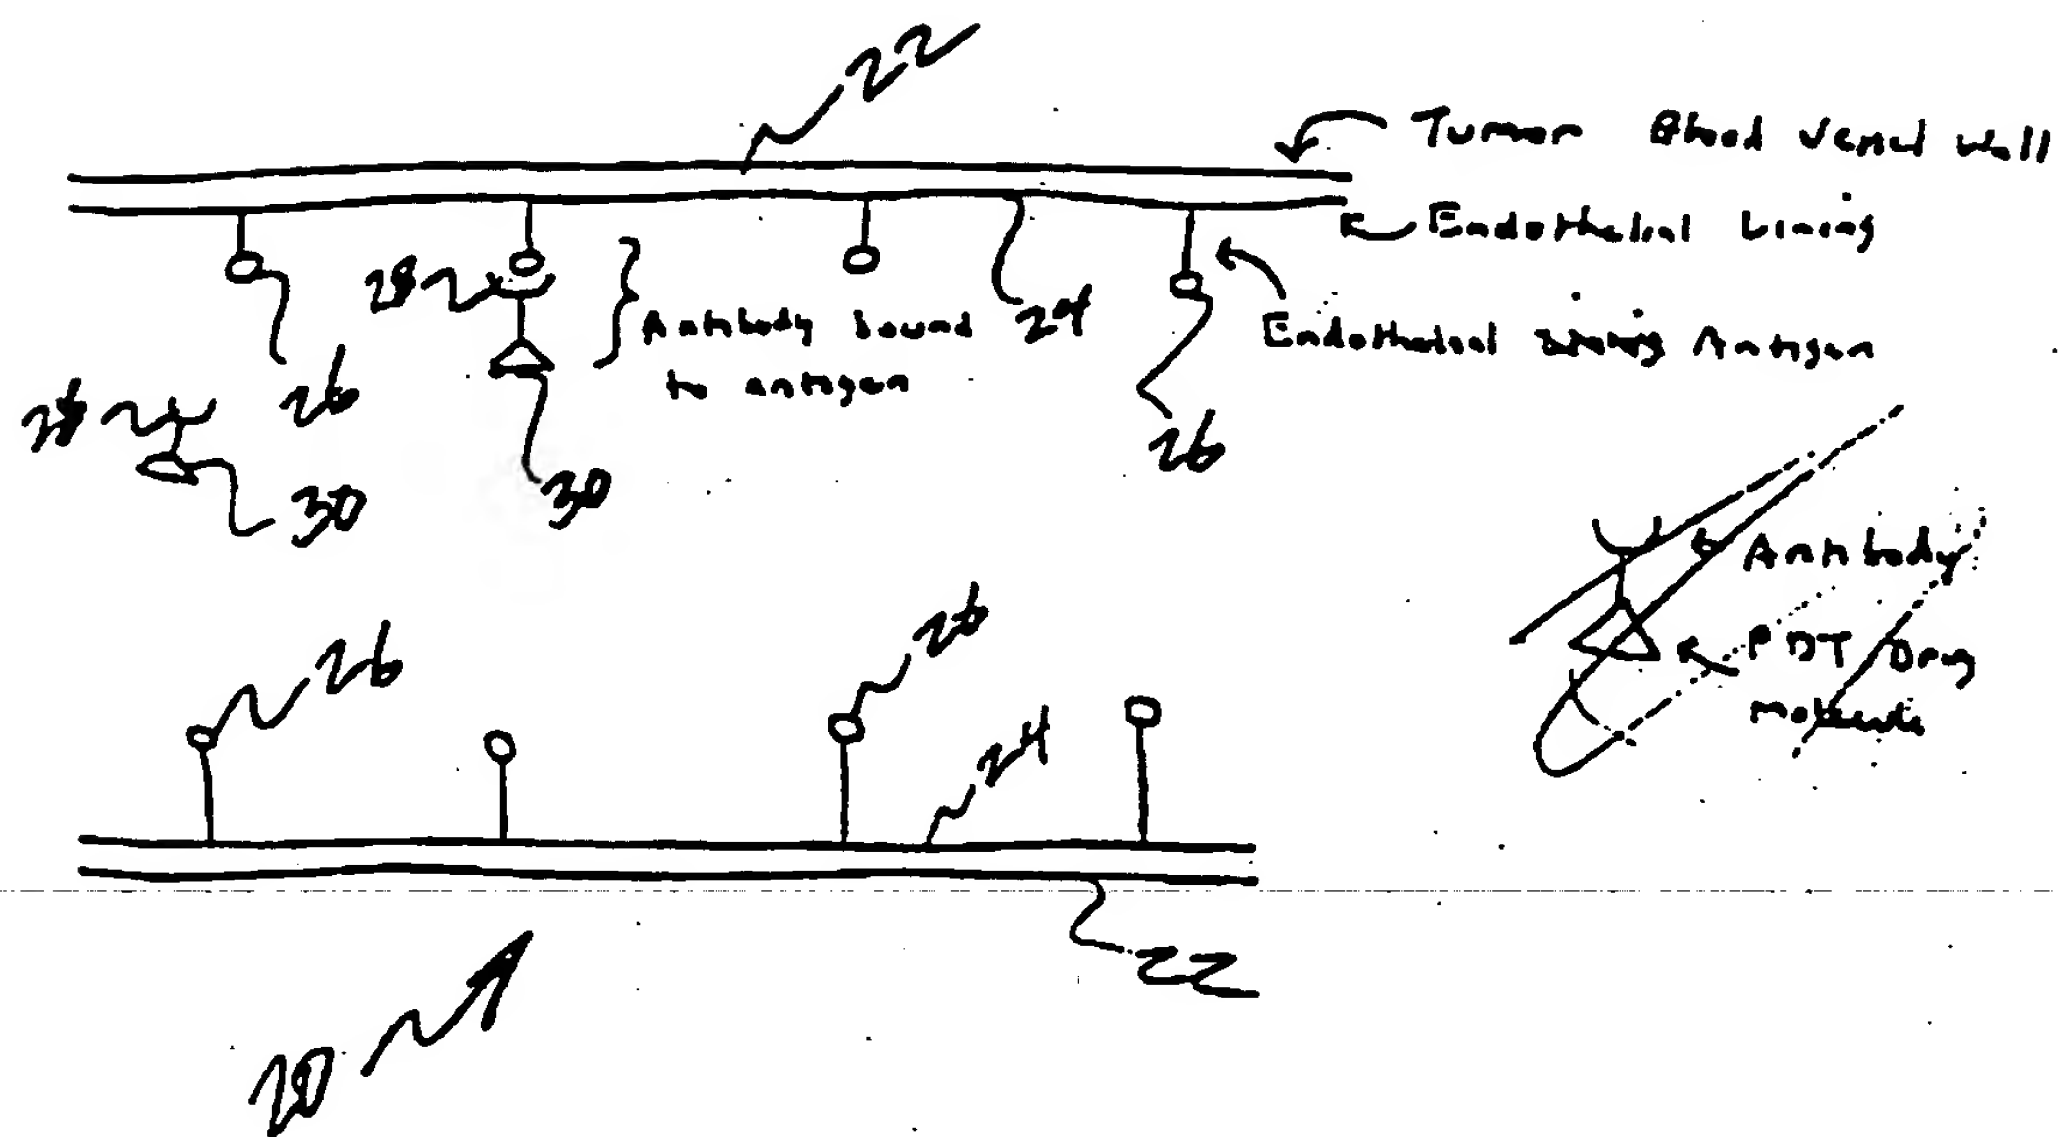 22
Tumor Blood Vessel Wall
Endothelial Lining
28
Antibody bound
to antigen
24
Endothelial Antigen
26
28
26
30
30
Antibody
PDT Drug
Molecule
26
26
24
22
20